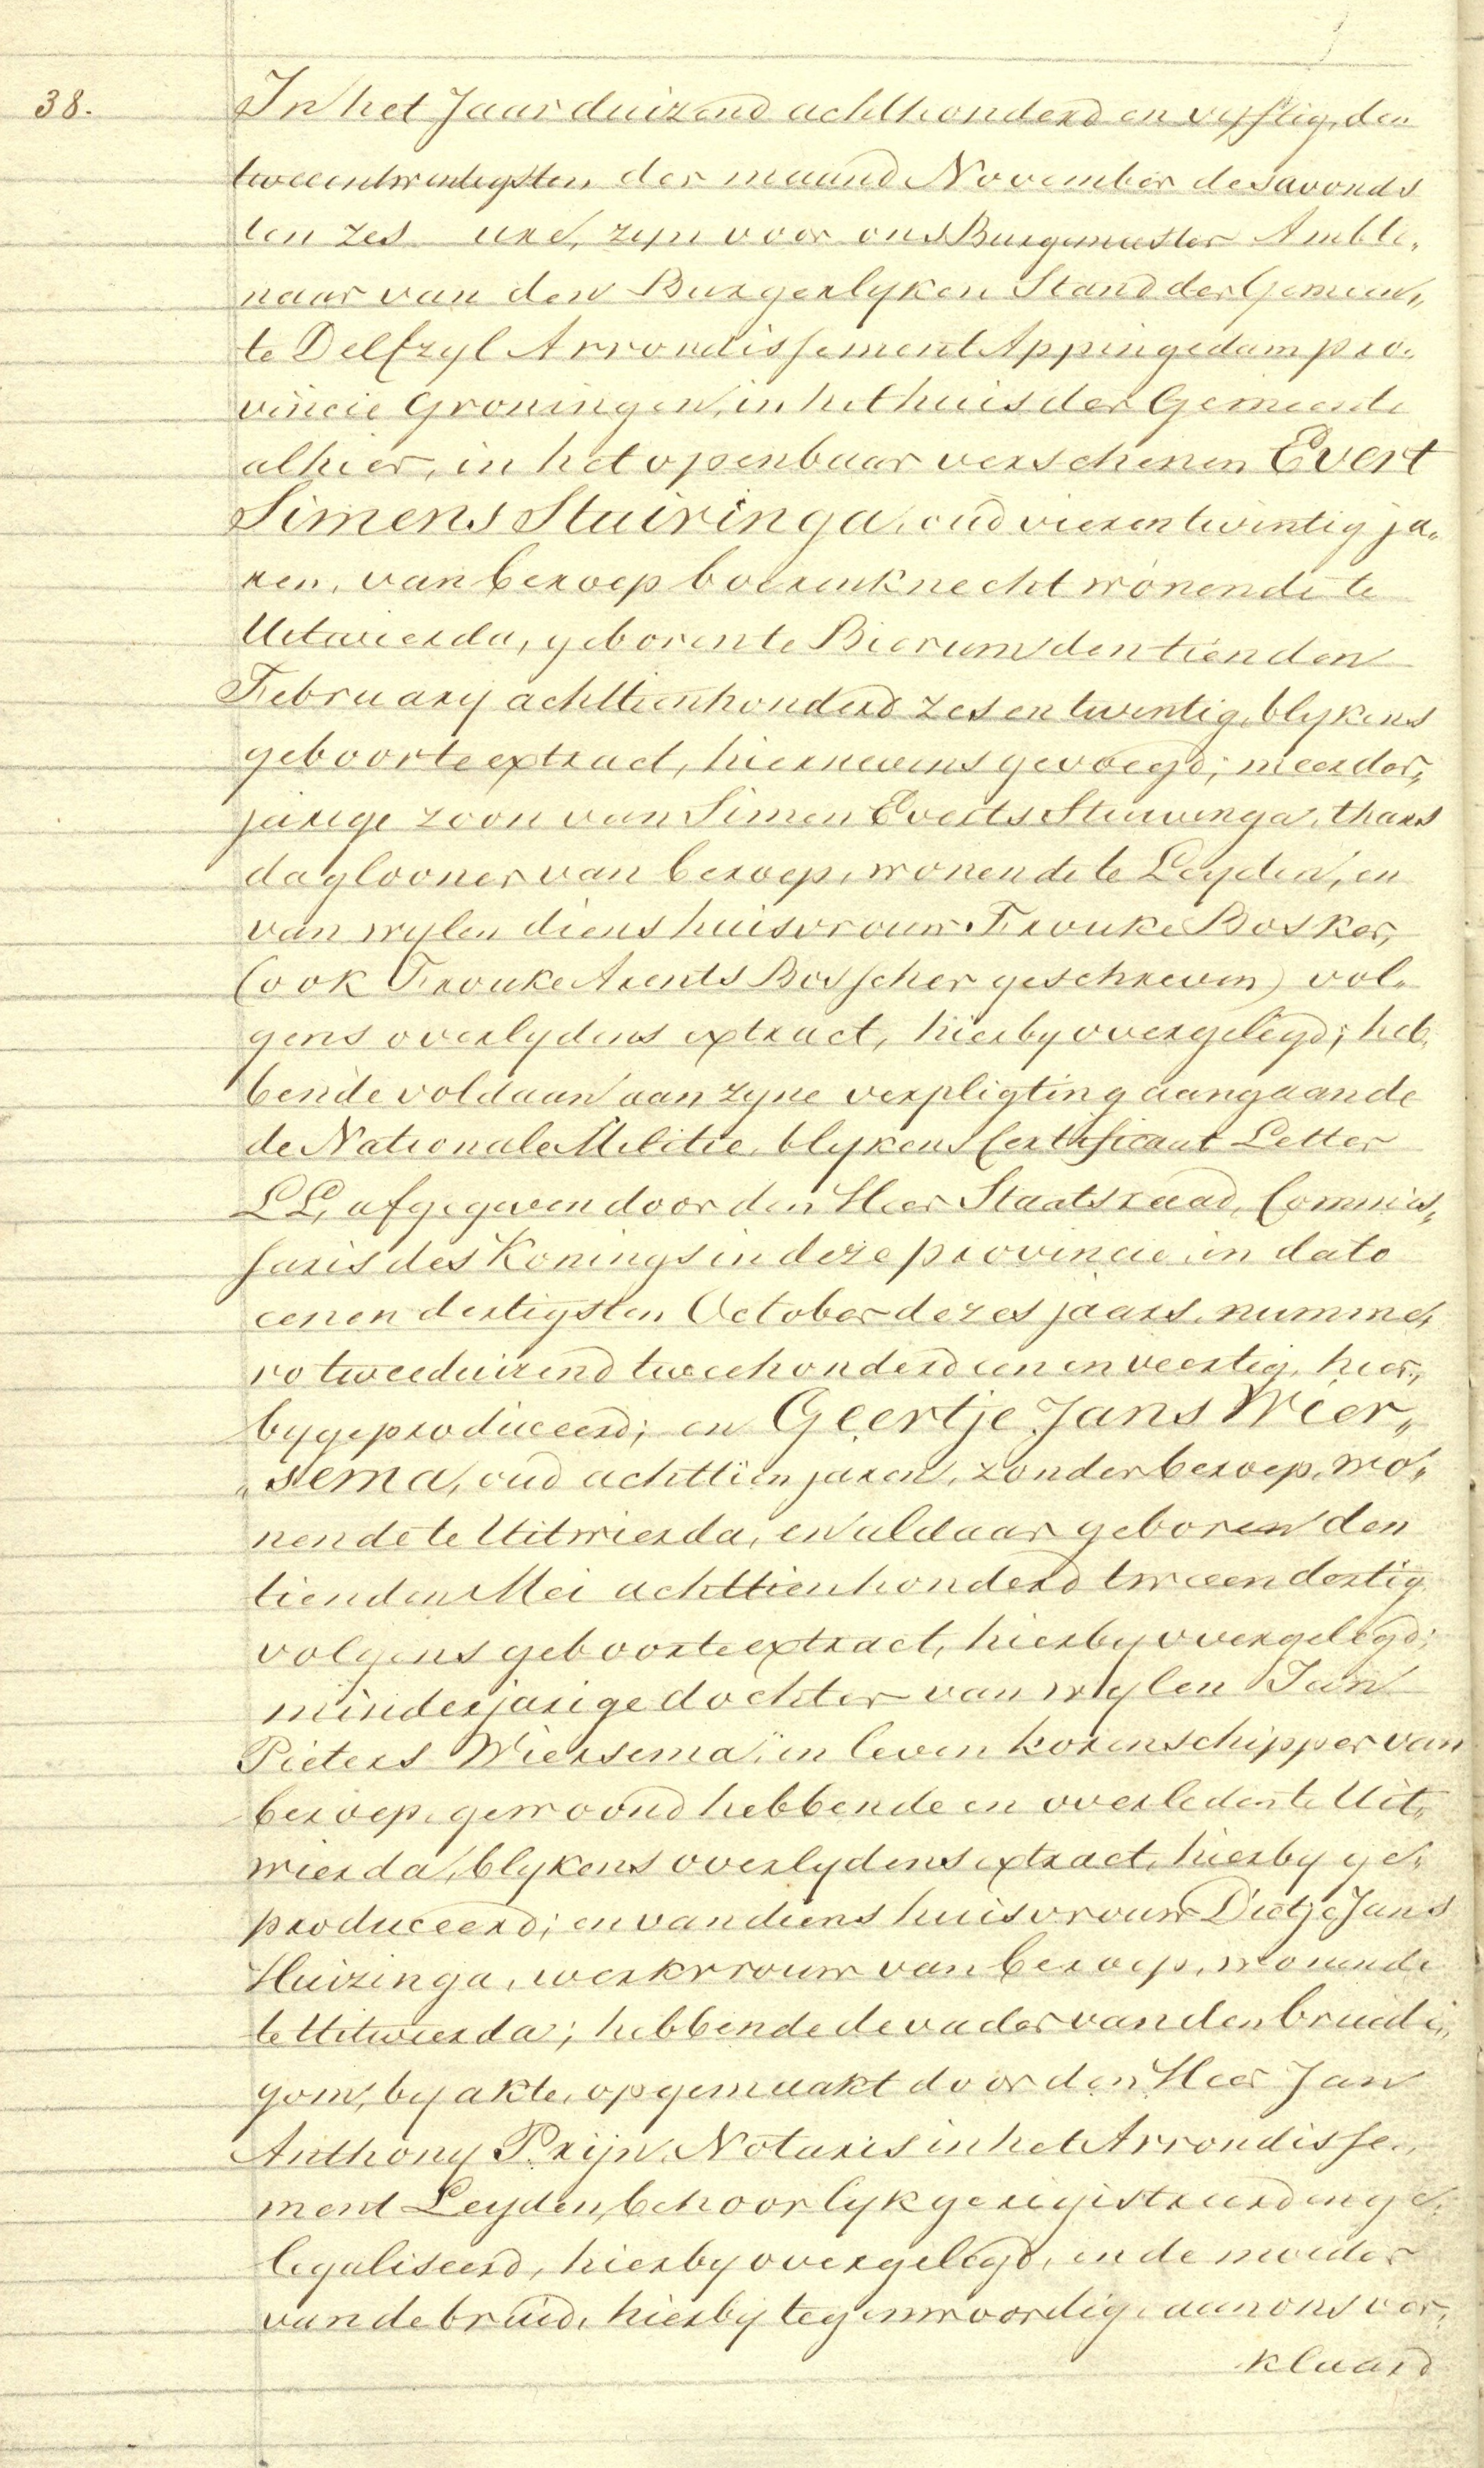 38.
In het Jaar duizend achthonderd en vyftig, den
tweeentwintigsten der maand November des avonds
ten zes ure, zyn voor ons Burgemeester Ambte„
naar van den Burgerlyken Stand der Gemeen„
te Delfzyl Arrondissement Appingedam pro„
vincie Groningen, in het huis der Gemeente
alhier, in het openbaar verschenen Evert
Simens Stuivinga, oud vierentwintig ja„
ren, van beroep boerenknecht wonende te
Uitwierda, geboren te Bierum den tienden
February achttienhonderd zes en twintig, blykens
geboorteextract, hiernevens gevoegd; meerder„
jarige zoon van Simen Everts Stuivinga, thans
daglooner van beroep, wonende te Leyden, en
van wylen diens huisvrouw Frouke Bosker,
(ook Frouke Arents Bosscher geschreven) vol„
gens overlydens extract, hierby overgelegd; heb„
bende voldaan aan zyne verpligting aangaande
de Nationale Militie, blykens Certificaat Letter
LL, afgegeven door den Heer Staatsraad, Commis„
saris des Konings in deze provincie, in dato
eenen dertigsten October dezes jaars, numme„
ro tweeduizend tweehonderd een en veertig, hier„
by geproduceerd; en Geertje Jans Wier„
„sema, oud achttien jaren, zonder beroep, wo„
nende te Uitwierda, en aldaar geboren den
tienden Mei achttienhonderd tweeendertig
volgens geboorteextract, hierby overgelegd;
minderjarige dochter van wylen Jan
Pieters Wiersema, in leven korenschipper van
beroep, gewoond hebbende en overleden te Uit„
wierda, blykens overlydens extract, hierby ge„
produceerd; en van diens huisvrouw Dietje Jans
Huizinga, werkvrouw van beroep, wonende
te Uitwierda; hebbende de vader van den bruidi„
gom, by akte, opgemaakt door den Heer Jan
Anthony Prijn, Notaris in het Arrondisse„
ment Leyden, behoorlyk geregistreerd en ge„
legaliseerd, hierby overgelegd, en de moeder
van de bruid, hierby tegenwoordig, aan ons ver„
klaard